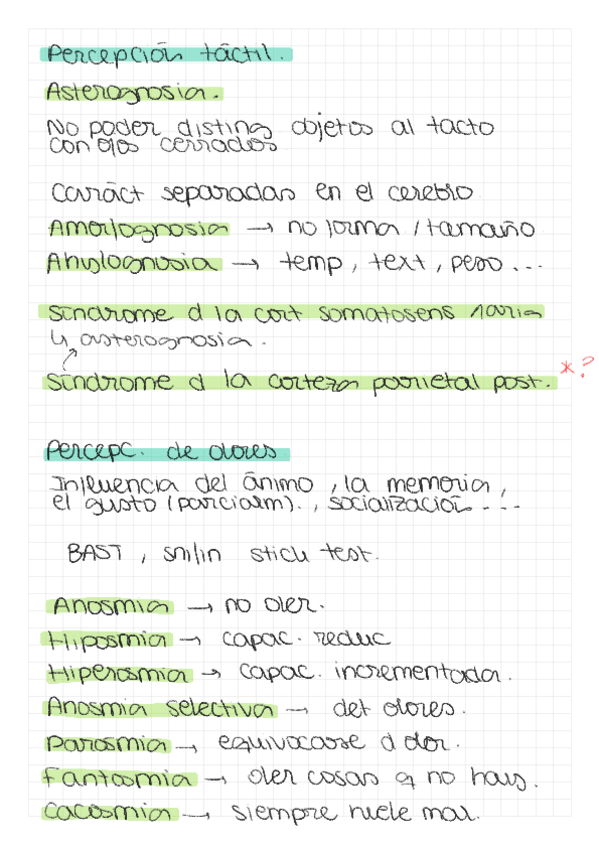 Percepción táctil.
Asterognosia.
No poder disting objetos al tacto
con ojos cerrados
Caráct separadas en el cerebro
Amorfognosia → no forma / tamaño
Ahylognosia → temp, text, peso ...
Síndrome d la cort somatosens 1aria
↳ asterognosia.
Síndrome d la corteza parietal post. *?
Percepc. de olores
Influencia del ánimo, la memoria,
el gusto (parcialm)., socialización ...
BAST, snifin stick test.
Anosmia → no oler.
Hiposmia → capac. reduc
Hiperosmia → capac. incrementada.
Anosmia selectiva → det olores.
Parosmia → equivocarse d olor.
Fantosmia → oler cosas q no hay.
Cacosmia → siempre huele mal.